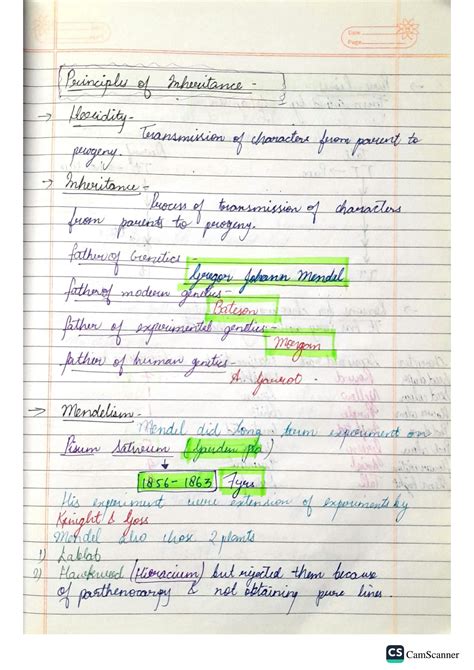 Date
Page
Principles of Inheritance -
→ Heredity -
Transmission of characters from parent to
progeny.
→ Inheritance -
Process of transmission of characters
from parents to progeny.
father of Genetics -
Gregor Johann Mendel
father of modern genetics -
Bateson
father of experimental genetics -
Morgan
father of human genetics -
A. Garrot.
→ Mendelism -
Mendel did long term experiment on
Pisum Sativum (Garden pea)
1856 - 1863 7yrs
His experiment were extension of expriments by
Knight & Goss
Mendel also chose 2 plants
1) Lablab
2) Hawkweed (Hieracium) but rejected them because
of parthenocarpy & not obtaining pure lines.
CS CamScanner